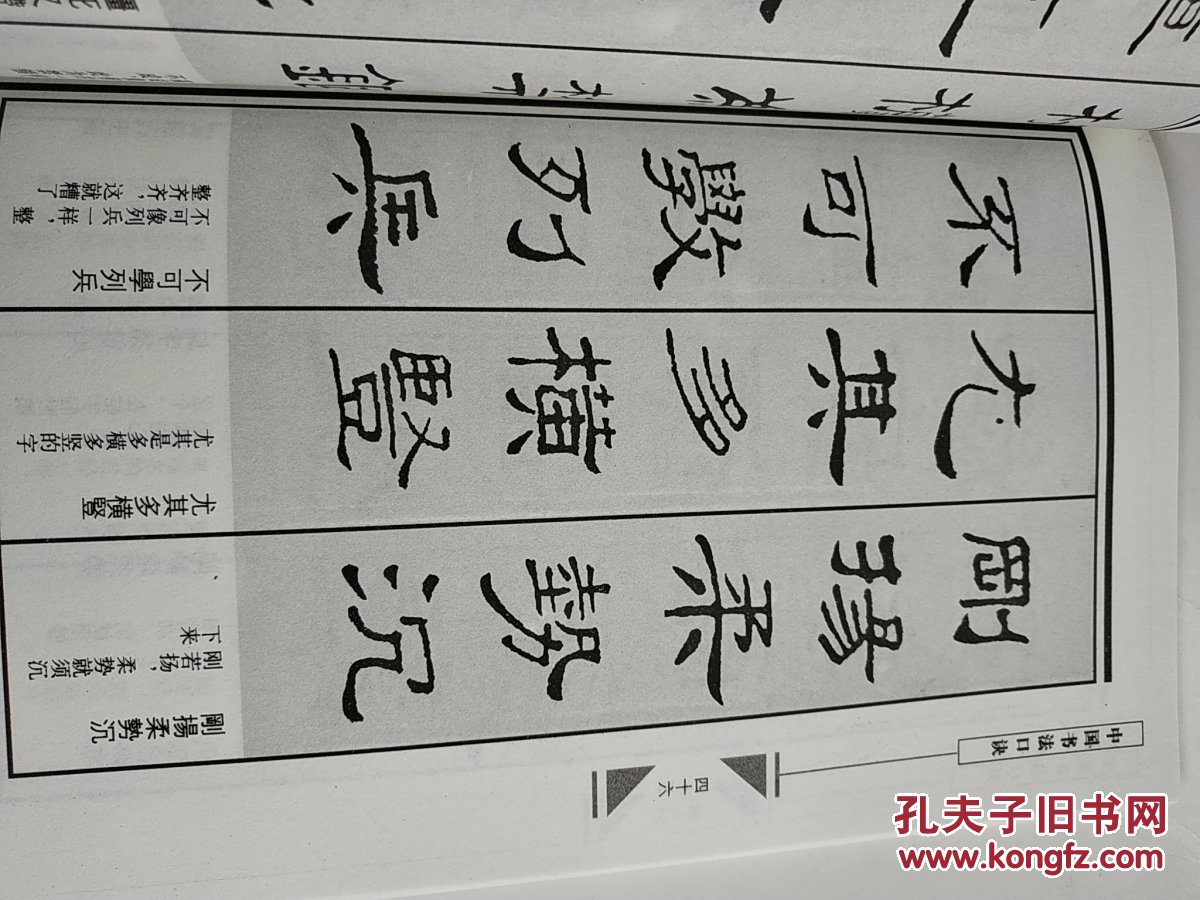 中国书法口诀
四十六
剛揚柔勢沉
尤其多橫豎
不可學列兵
剛揚柔勢沉
刚若扬，柔势就须沉
下来
尤其多橫豎
尤其是多横多竖的字
不可學列兵
不可像列兵一样，整
整齐齐，这就糟了
孔夫子旧书网
www.kongfz.com